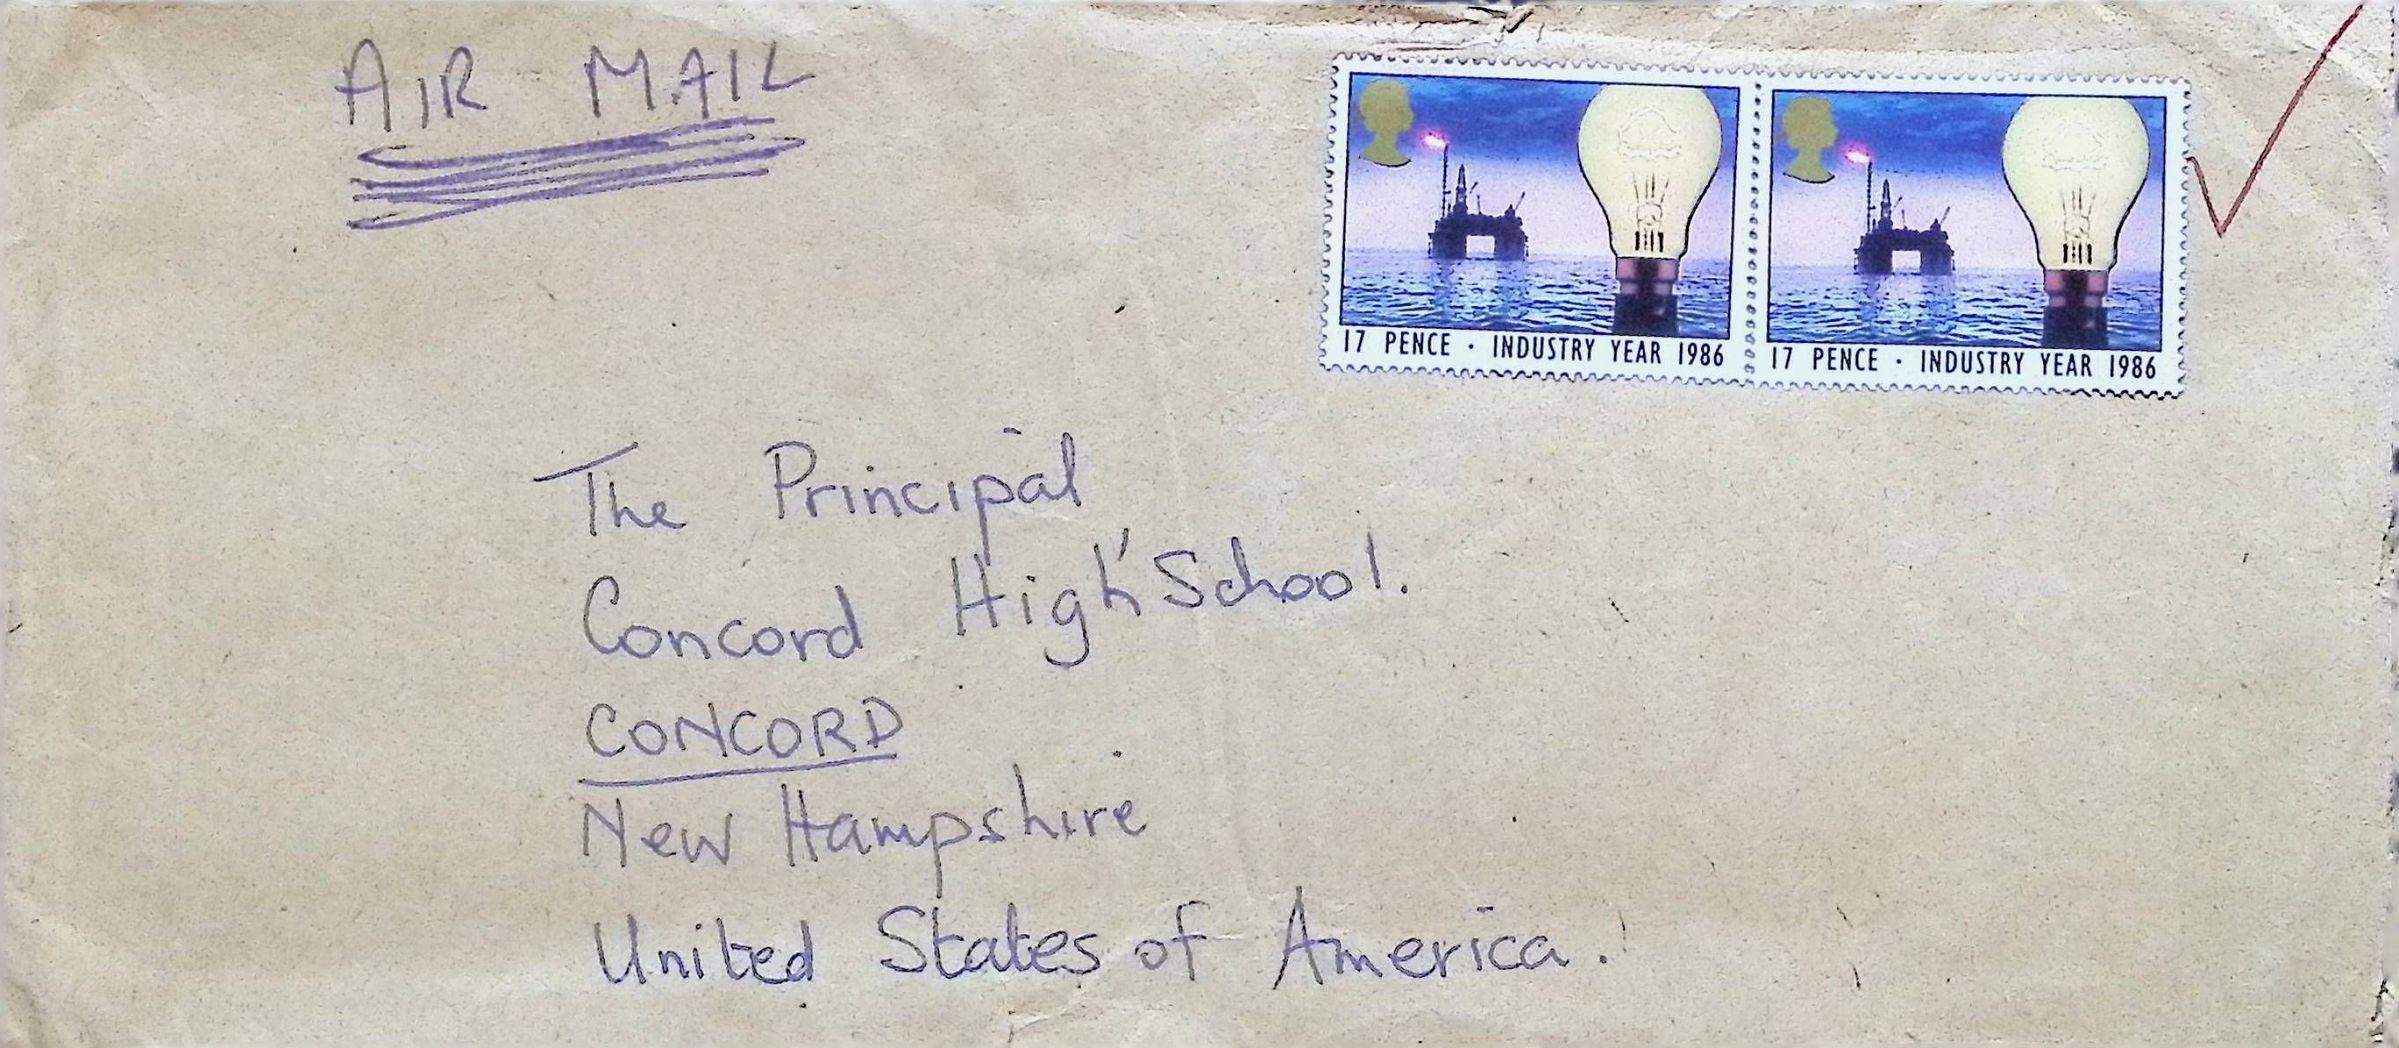 AIR MAIL
17 PENCE · INDUSTRY YEAR 1986
17 PENCE · INDUSTRY YEAR 1986
The Principal
Concord High School.
CONCORD
New Hampshire
United States of America.